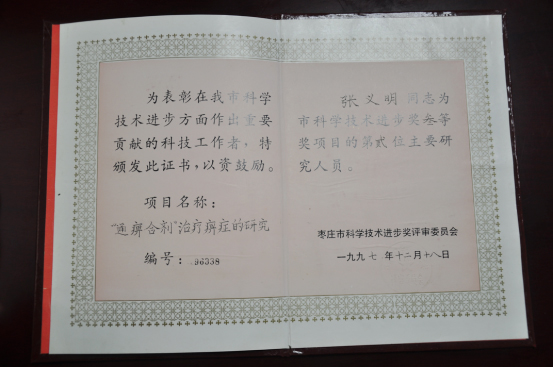 为表彰在我市科学
技术进步方面作出重要
贡献的科技工作者，特
颁发此证书，以资鼓励。
项目名称：
“通痹合剂”治疗痹症的研究
编号：96338
张义明同志为
市科学技术进步奖叁等
奖项目的第贰位主要研
究人员。
枣庄市科学技术进步奖评审委员会
一九九七年十二月十八日